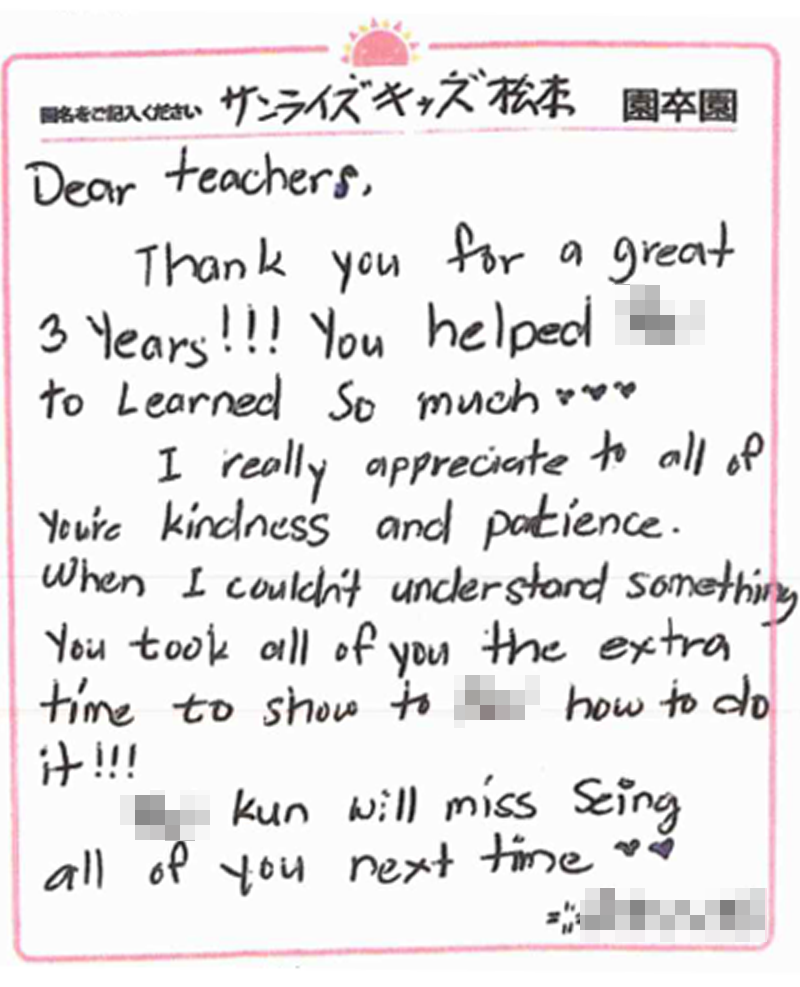 園名をご記入ください サンライズキッズ松本 園卒園
Dear teachers,
Thank you for a great
3 Years!!! You helped
to Learned So much ♥♥♥
I really appreciate to all of
you're kindness and patience.
When I couldn't understand something
You took all of you the extra
time to show to how to do
it!!!
kun will miss Seing
all of you next time ♥♥